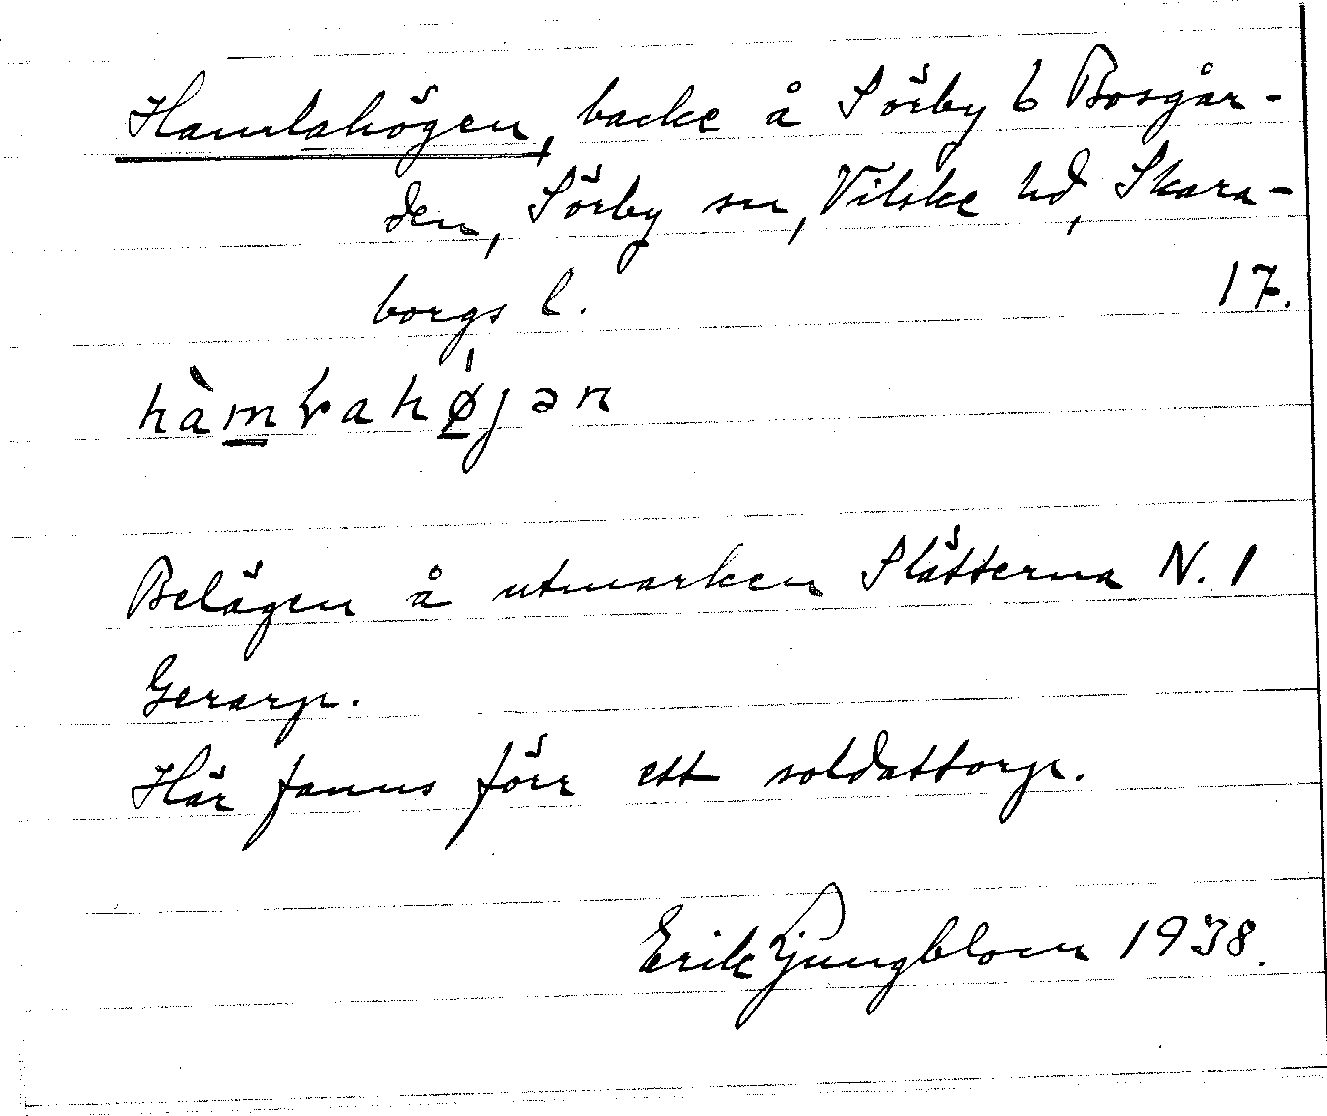 Hamlahögen, backe å Sörby 6 Bosgår-
den, Sörby sn, Vilske hd, Skara-
borgs l. 17.
hàmɽahøjən
Belägen å utmarken Slätterna N. I
Gerarp.
Här fanns förr ett soldattorp.
Erik Ljungblom 1938.